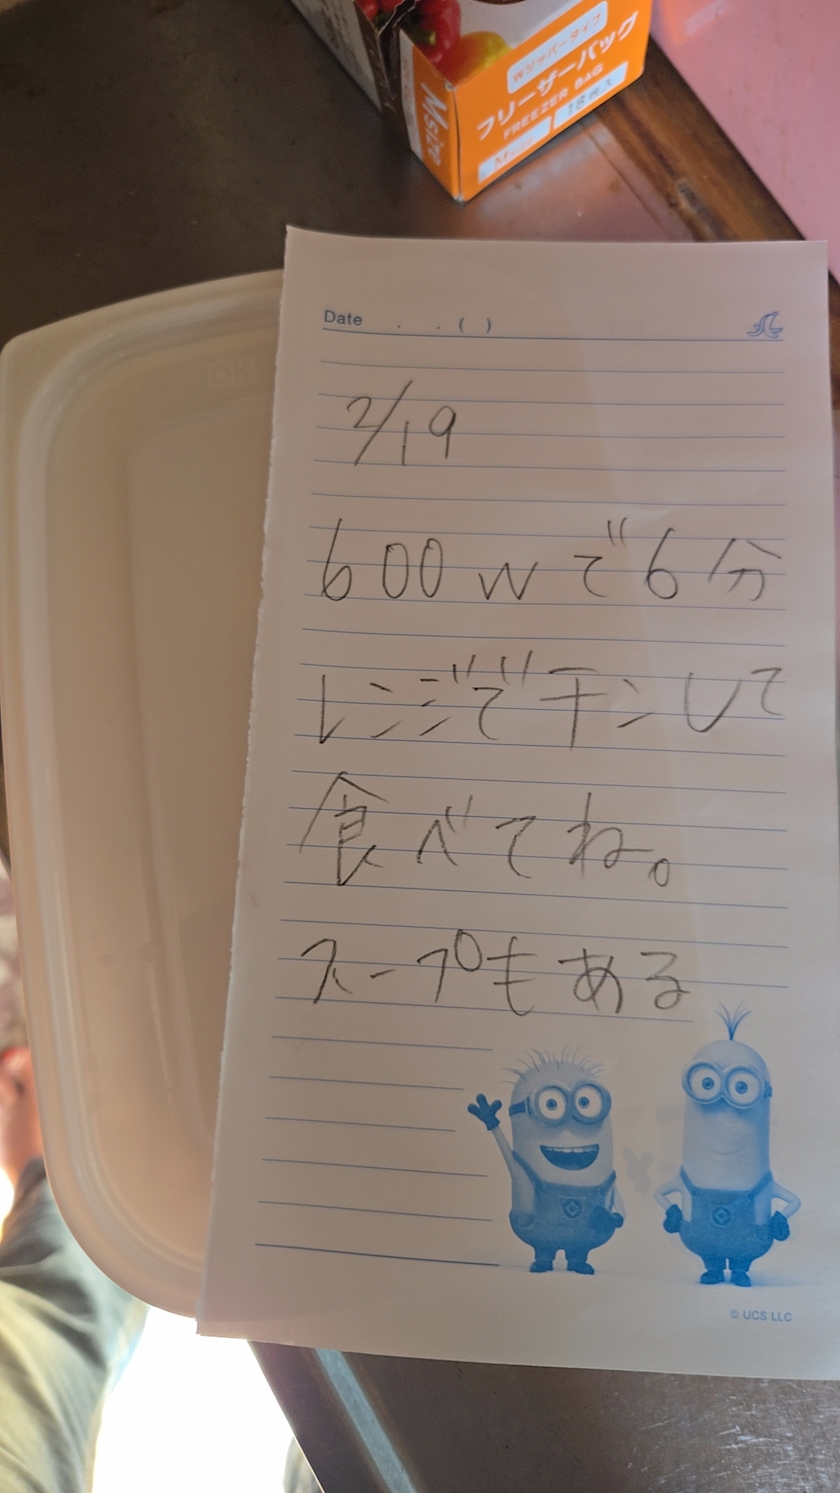 Wジッパータイプ
フリーザーバッグ
FREEZER BAG
18枚入
M size
Msize
Date . . ( )
2/19
600wで6分
レンジでチンして
食べてね。
スープもある
© UCS LLC